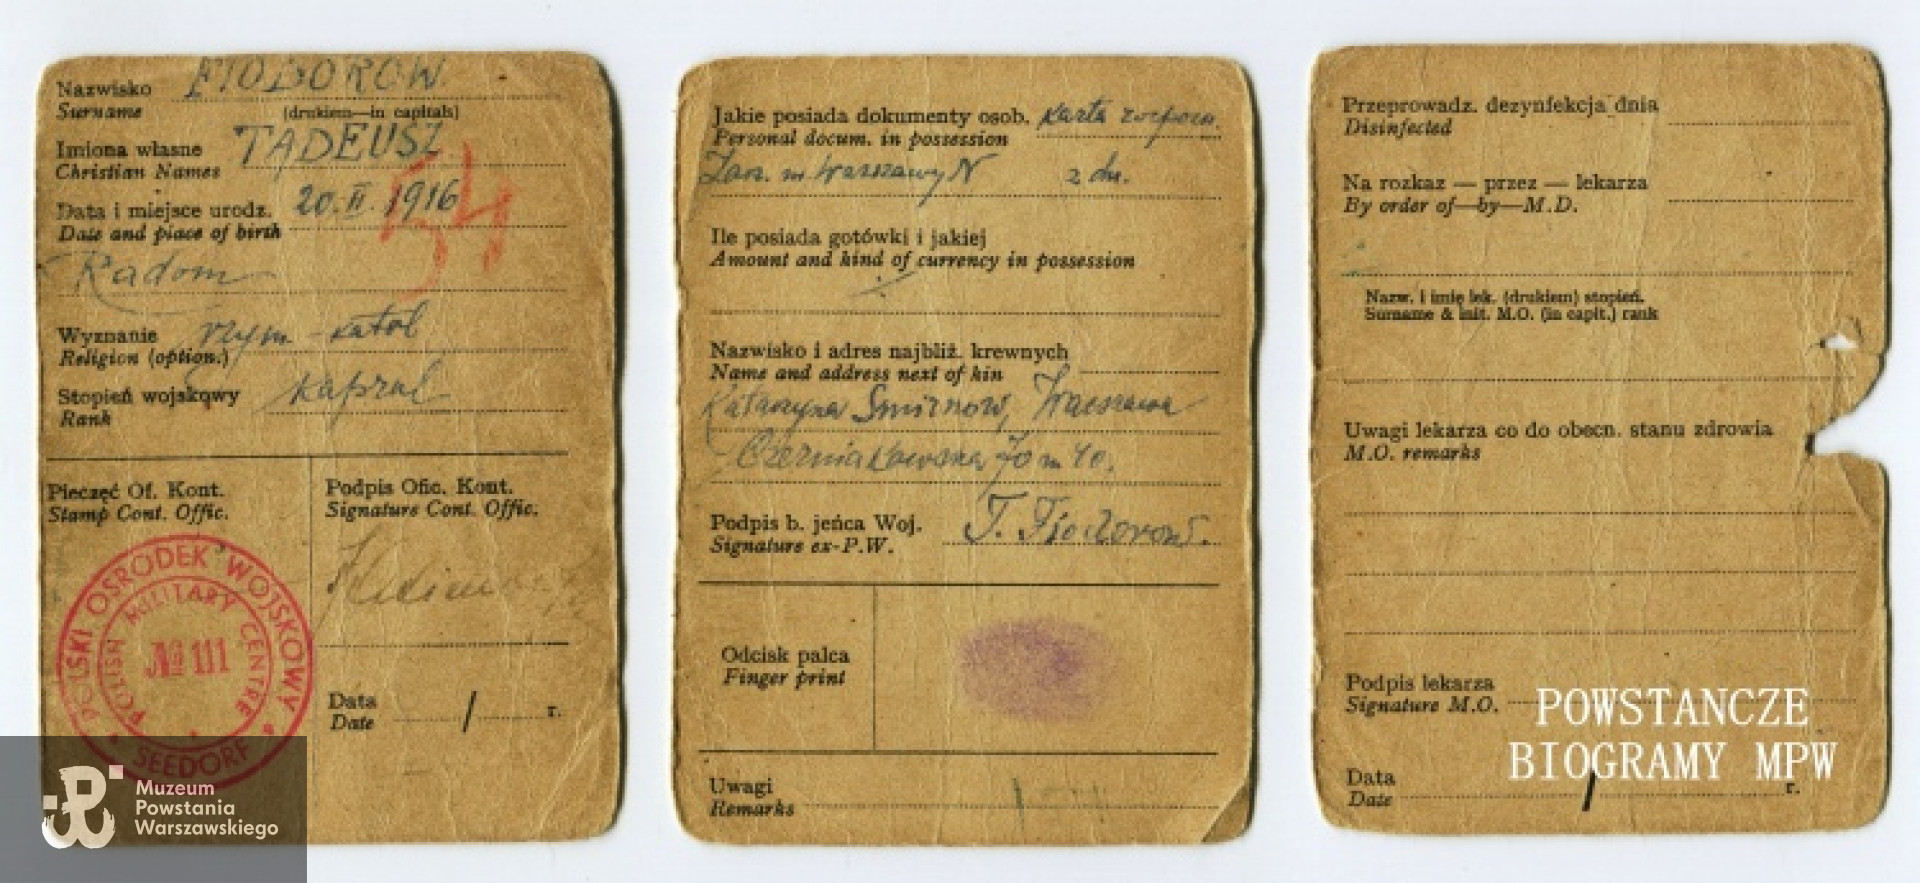 Nazwisko FIODOROW
Surname (drukiem—in capitals)
Imiona własne TADEUSZ
Christian Names
54
Data i miejsce urodz. 20. II. 1916
Date and place of birth
Radom
Wyznanie rzym - katol
Religion (option.)
Stopień wojskowy kapral
Rank
Pieczęć Of. Kont.
Stamp Cont. Offic.
Podpis Ofic. Kont.
Signature Cont. Offic.
POLSKI OŚRODEK WOJSKOWY
POLISH MILITARY CENTRE
№ 111
SEEDORF
Data
Date / r.
Muzeum
Powstania
Warszawskiego
Jakie posiada dokumenty osob. Karta
Personal docum. in possession
m Warszawy N 2 dn.
Ile posiada gotówki i jakiej
Amount and kind of currency in possession
Nazwisko i adres najbliż. krewnych
Name and address next of kin
Katarzyna Smirnow, Warszawa
Czerniakowska 70 m 40.
Podpis b. jeńca Woj. T. Fiodorow.
Signature ex-P.W.
Odcisk palca
Finger print
Uwagi
Remarks
Przeprowadz. dezynfekcja dnia
Disinfected
Na rozkaz — przez — lekarza
By order of—by—M.D.
Nazw. i imię lek. (drukiem) stopień.
Surname & init. M.O. (in capit.) rank
Uwagi lekarza co do obecn. stanu zdrowia
M.O. remarks
Podpis lekarza
Signature M.O.
POWSTANCZE
BIOGRAMY MPW
Data
Date / r.